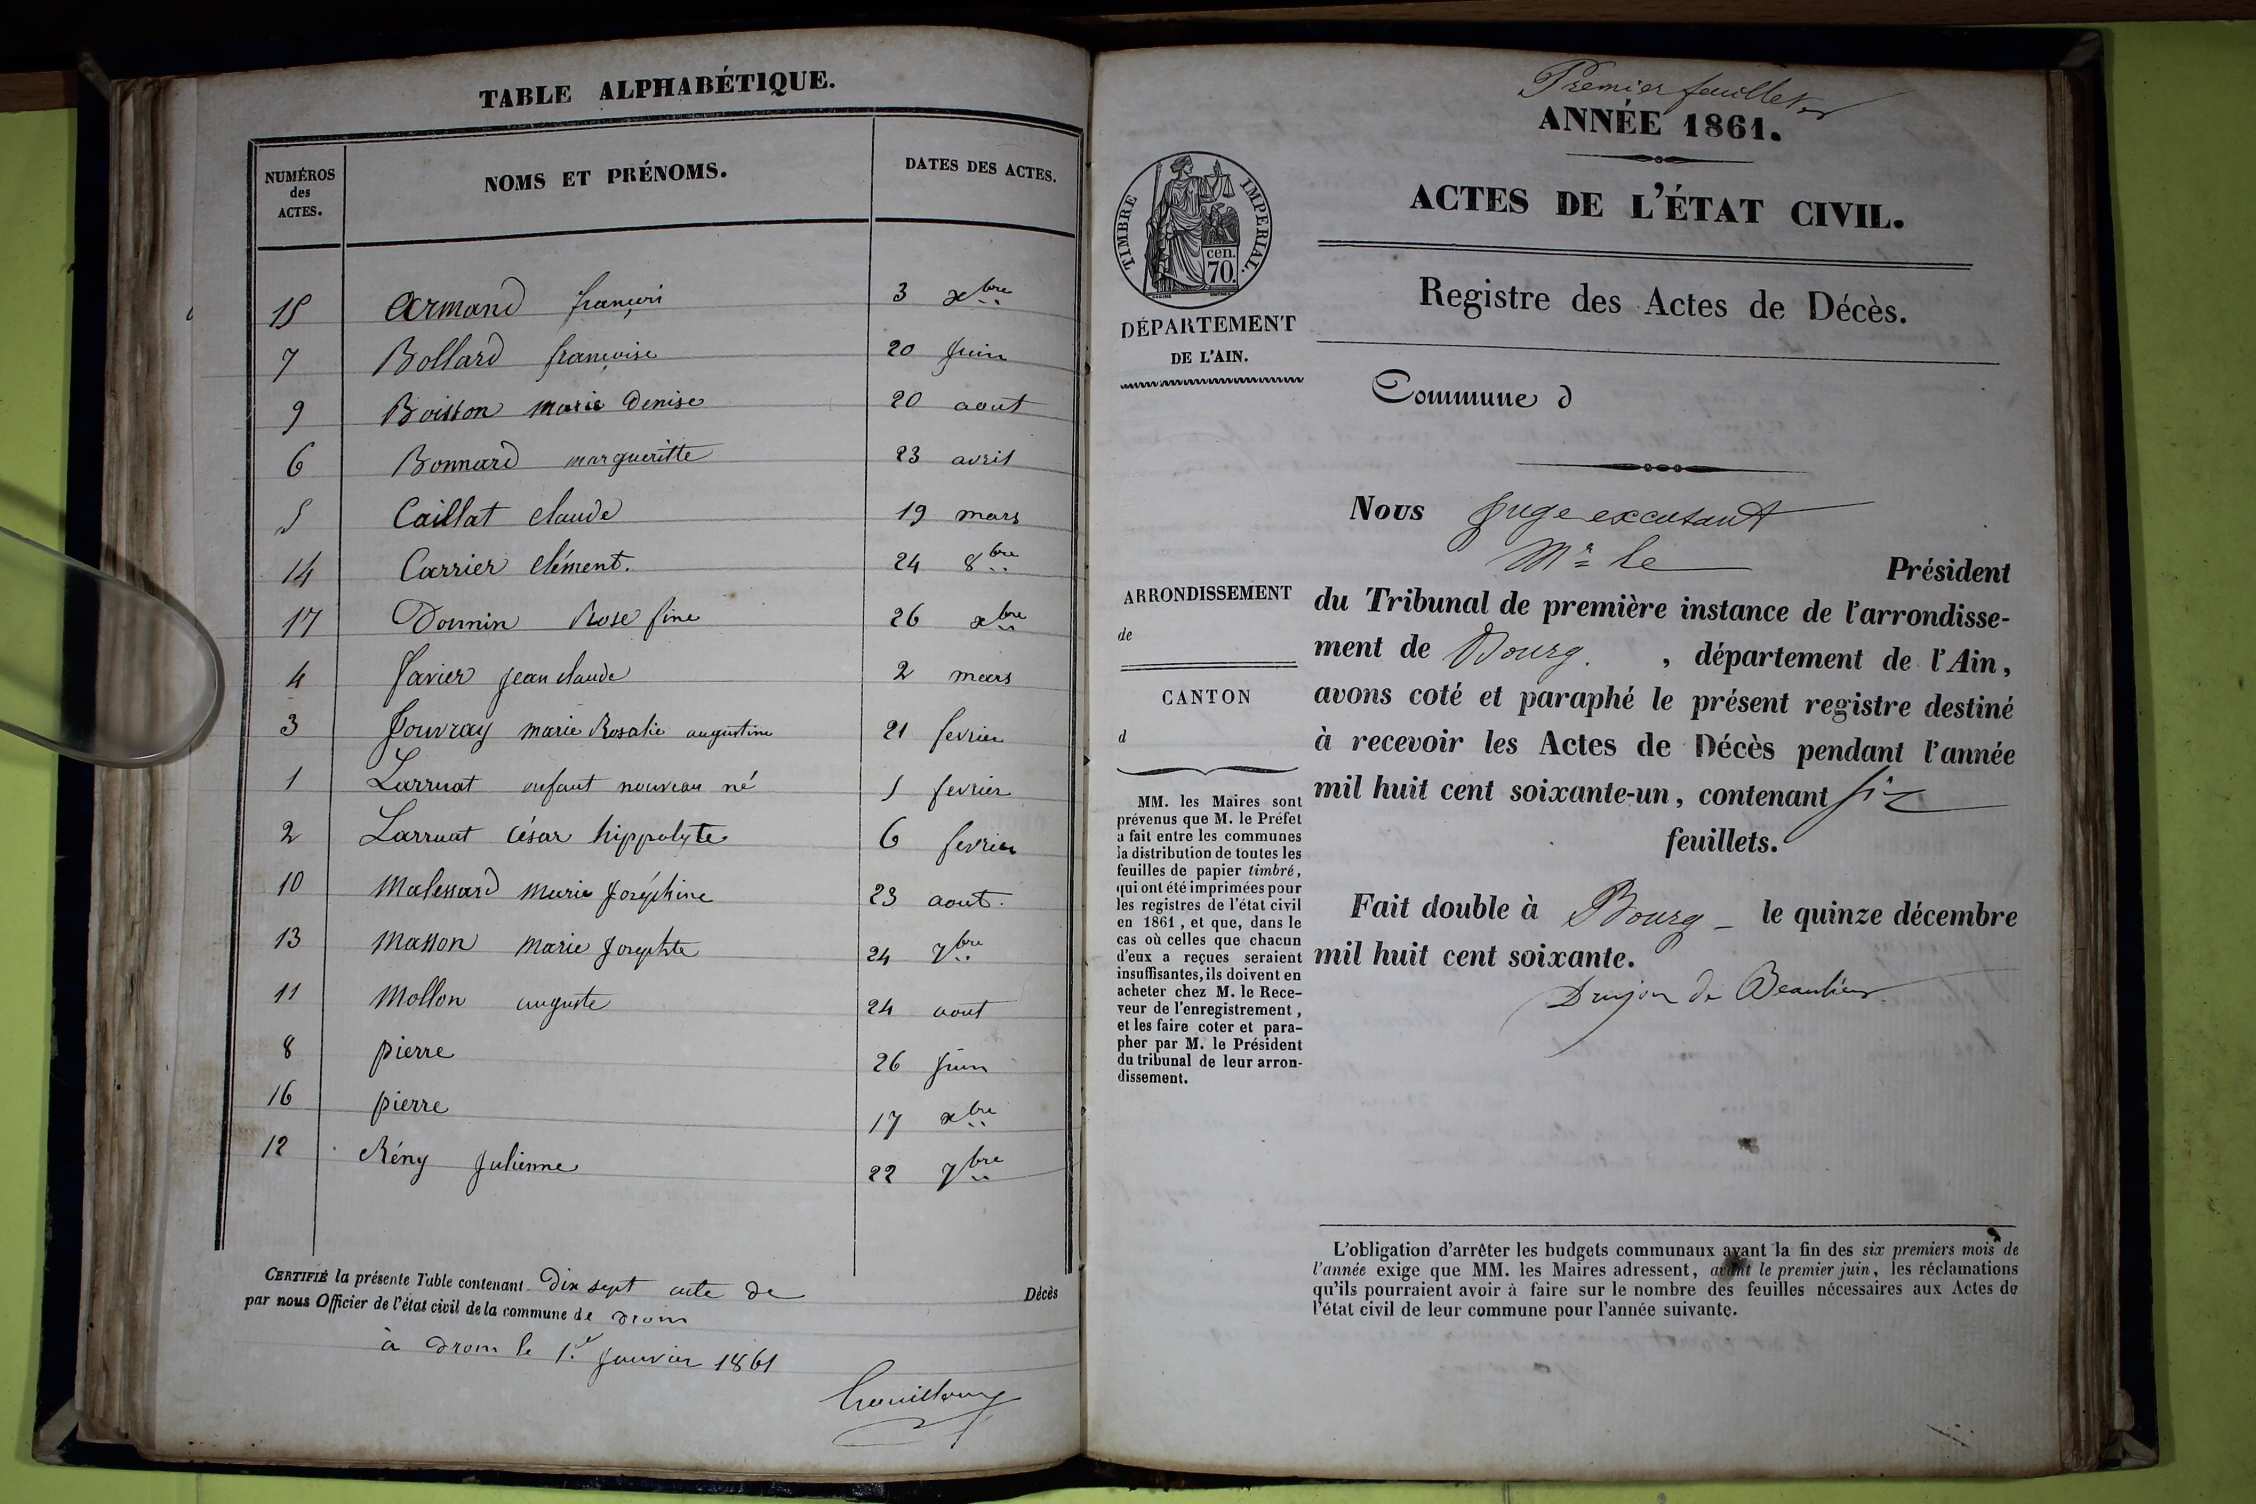 TABLE ALPHABÉTIQUE.
NUMÉROS des ACTES. NOMS ET PRÉNOMS. DATES DES ACTES.
15 Armand françois 3 xbre
7 Bollard françoise 20 Juin
9 Boisson marie Denise 20 aout
6 Bonnard margueritte 23 avril
5 Caillat claude 19 mars
14 Carrier clément. 24 8bre
17 Donnin Rose fine 26 xbre
4 favier jean claude 2 mars
3 Jouvray marie Rosalie augustine 21 fevrier
1 Larruat enfant nouveau né 5 fevrier
2 Larruat César hippolyte 6 fevrier
10 Malessard Marie Joséphine 23 aout.
13 Masson Marie Josephte 24 7bre
11 Mollon auguste 24 aout
8 pierre 26 juin
16 pierre 17 xbre
12 Rény Julienne 22 7bre
CERTIFIÉ la présente Table contenant Dix sept acte de Décès
par nous Officier de l'état civil de la commune de Drom
à Drom le 1er Janvier 1861
Premier feuillet
ANNÉE 1861.
ACTES DE L'ÉTAT CIVIL.
TIMBRE IMPERIAL.
cen.
70
Registre des Actes de Décès.
DÉPARTEMENT
DE L'AIN.
Commune d
Nous Juge excusant
Mr le Président
ARRONDISSEMENT
de
CANTON
d
du Tribunal de première instance de l'arrondisse-
ment de Bourg. , département de l'Ain,
avons coté et paraphé le présent registre destiné
à recevoir les Actes de Décès pendant l'année
mil huit cent soixante-un, contenant six
feuillets.
Fait double à Bourg le quinze décembre
mil huit cent soixante.
Drujon de Beaulieu
MM. les Maires sont
prévenus que M. le Préfet
a fait entre les communes
la distribution de toutes les
feuilles de papier timbré,
qui ont été imprimées pour
les registres de l'état civil
en 1861, et que, dans le
cas où celles que chacun
d'eux a reçues seraient
insuffisantes, ils doivent en
acheter chez M. le Rece-
veur de l'enregistrement,
et les faire coter et para-
pher par M. le Président
du tribunal de leur arron-
dissement.
L'obligation d'arrêter les budgets communaux avant la fin des six premiers mois de
l'année exige que MM. les Maires adressent, avant le premier juin, les réclamations
qu'ils pourraient avoir à faire sur le nombre des feuilles nécessaires aux Actes de
l'état civil de leur commune pour l'année suivante.